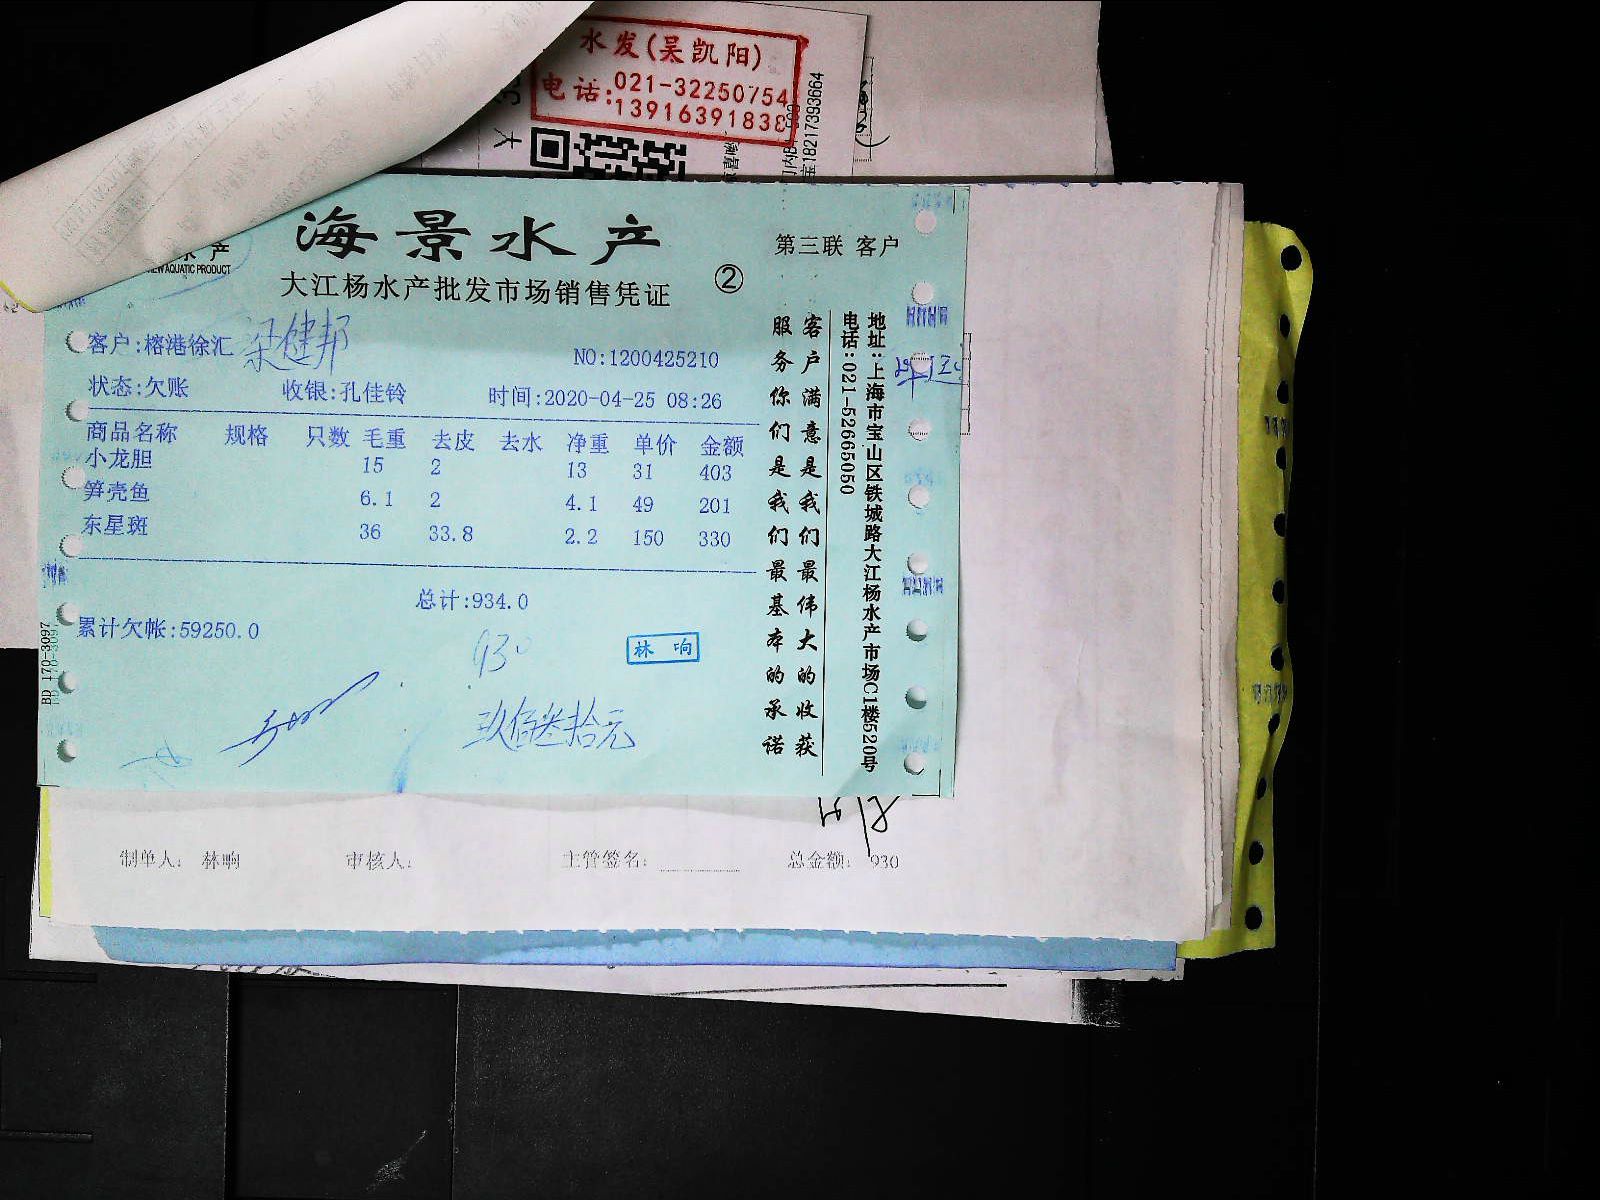 水发(吴凯阳)
电话:021-32250754
13916391838
宝18217393664
大
水产
VIEW AQUATIC PRODUCT
海景水产
大江杨水产批发市场销售凭证
②
第三联 客户
客户:榕港徐汇 梁健邦
NO:1200425210
状态:欠账 收银:孔佳铃 时间:2020-04-25 08:26
商品名称 规格 只数 毛重 去皮 去水 净重 单价 金额
小龙胆 15 2 13 31 403
笋壳鱼 6.1 2 4.1 49 201
东星斑 36 33.8 2.2 150 330
总计:934.0
累计欠帐:59250.0
930
林响
玖佰叁拾元
客户满意是我们最伟大的收获
服务你们是我们最基本的承诺
地址:上海市宝山区铁城路大江杨水产市场C1楼520号
电话:021-52665050
BD 170-3097
制单人: 林响 审核人: 主管签名: 总金额: 930